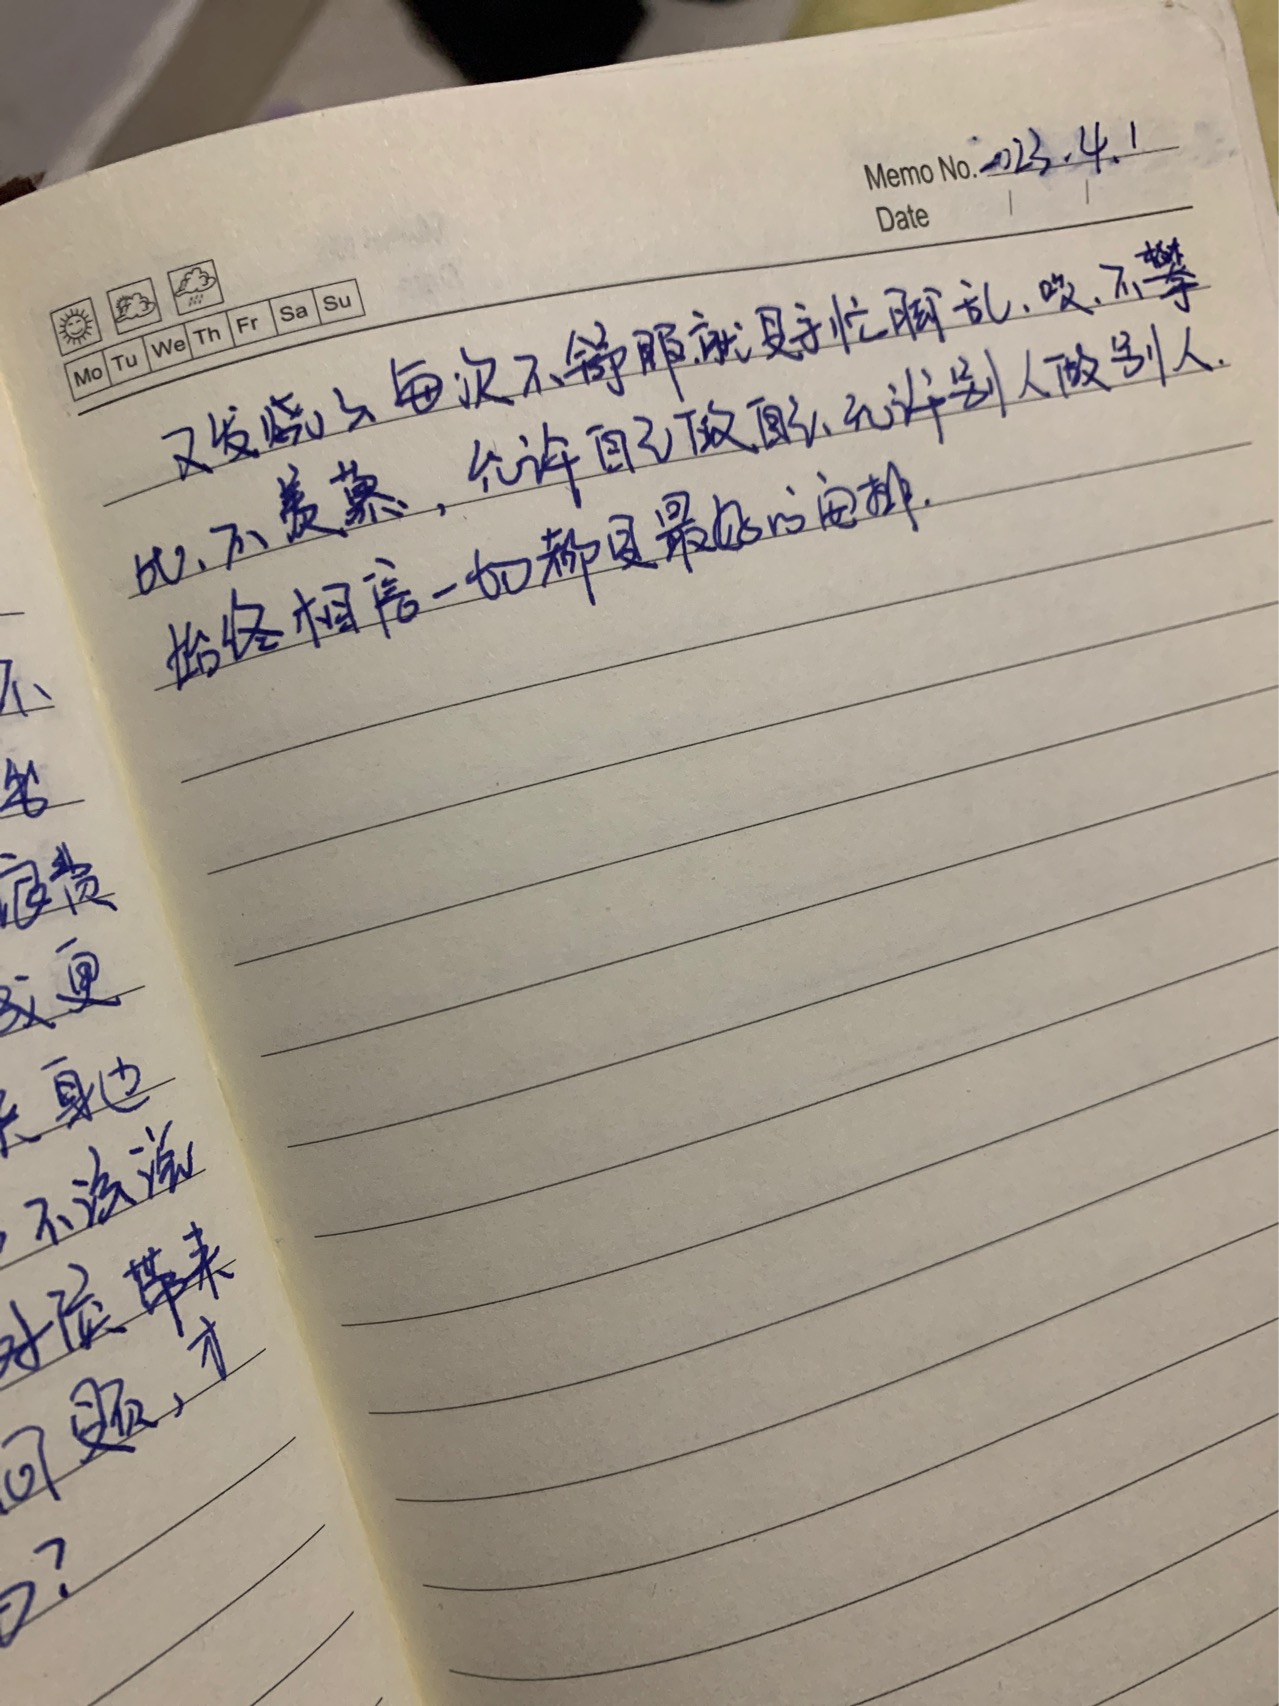 Memo No. 2023.4.1
Date
Mo Tu We Th Fr Sa Su
又发烧了,每次不舒服就是手忙脚乱、唉、不攀
比、不羡慕,允许自己做自己、允许别人做别人.
始终相信一切都是最好的安排.
不、
浪费
成更
身边
不该说
对应带来
,才
?